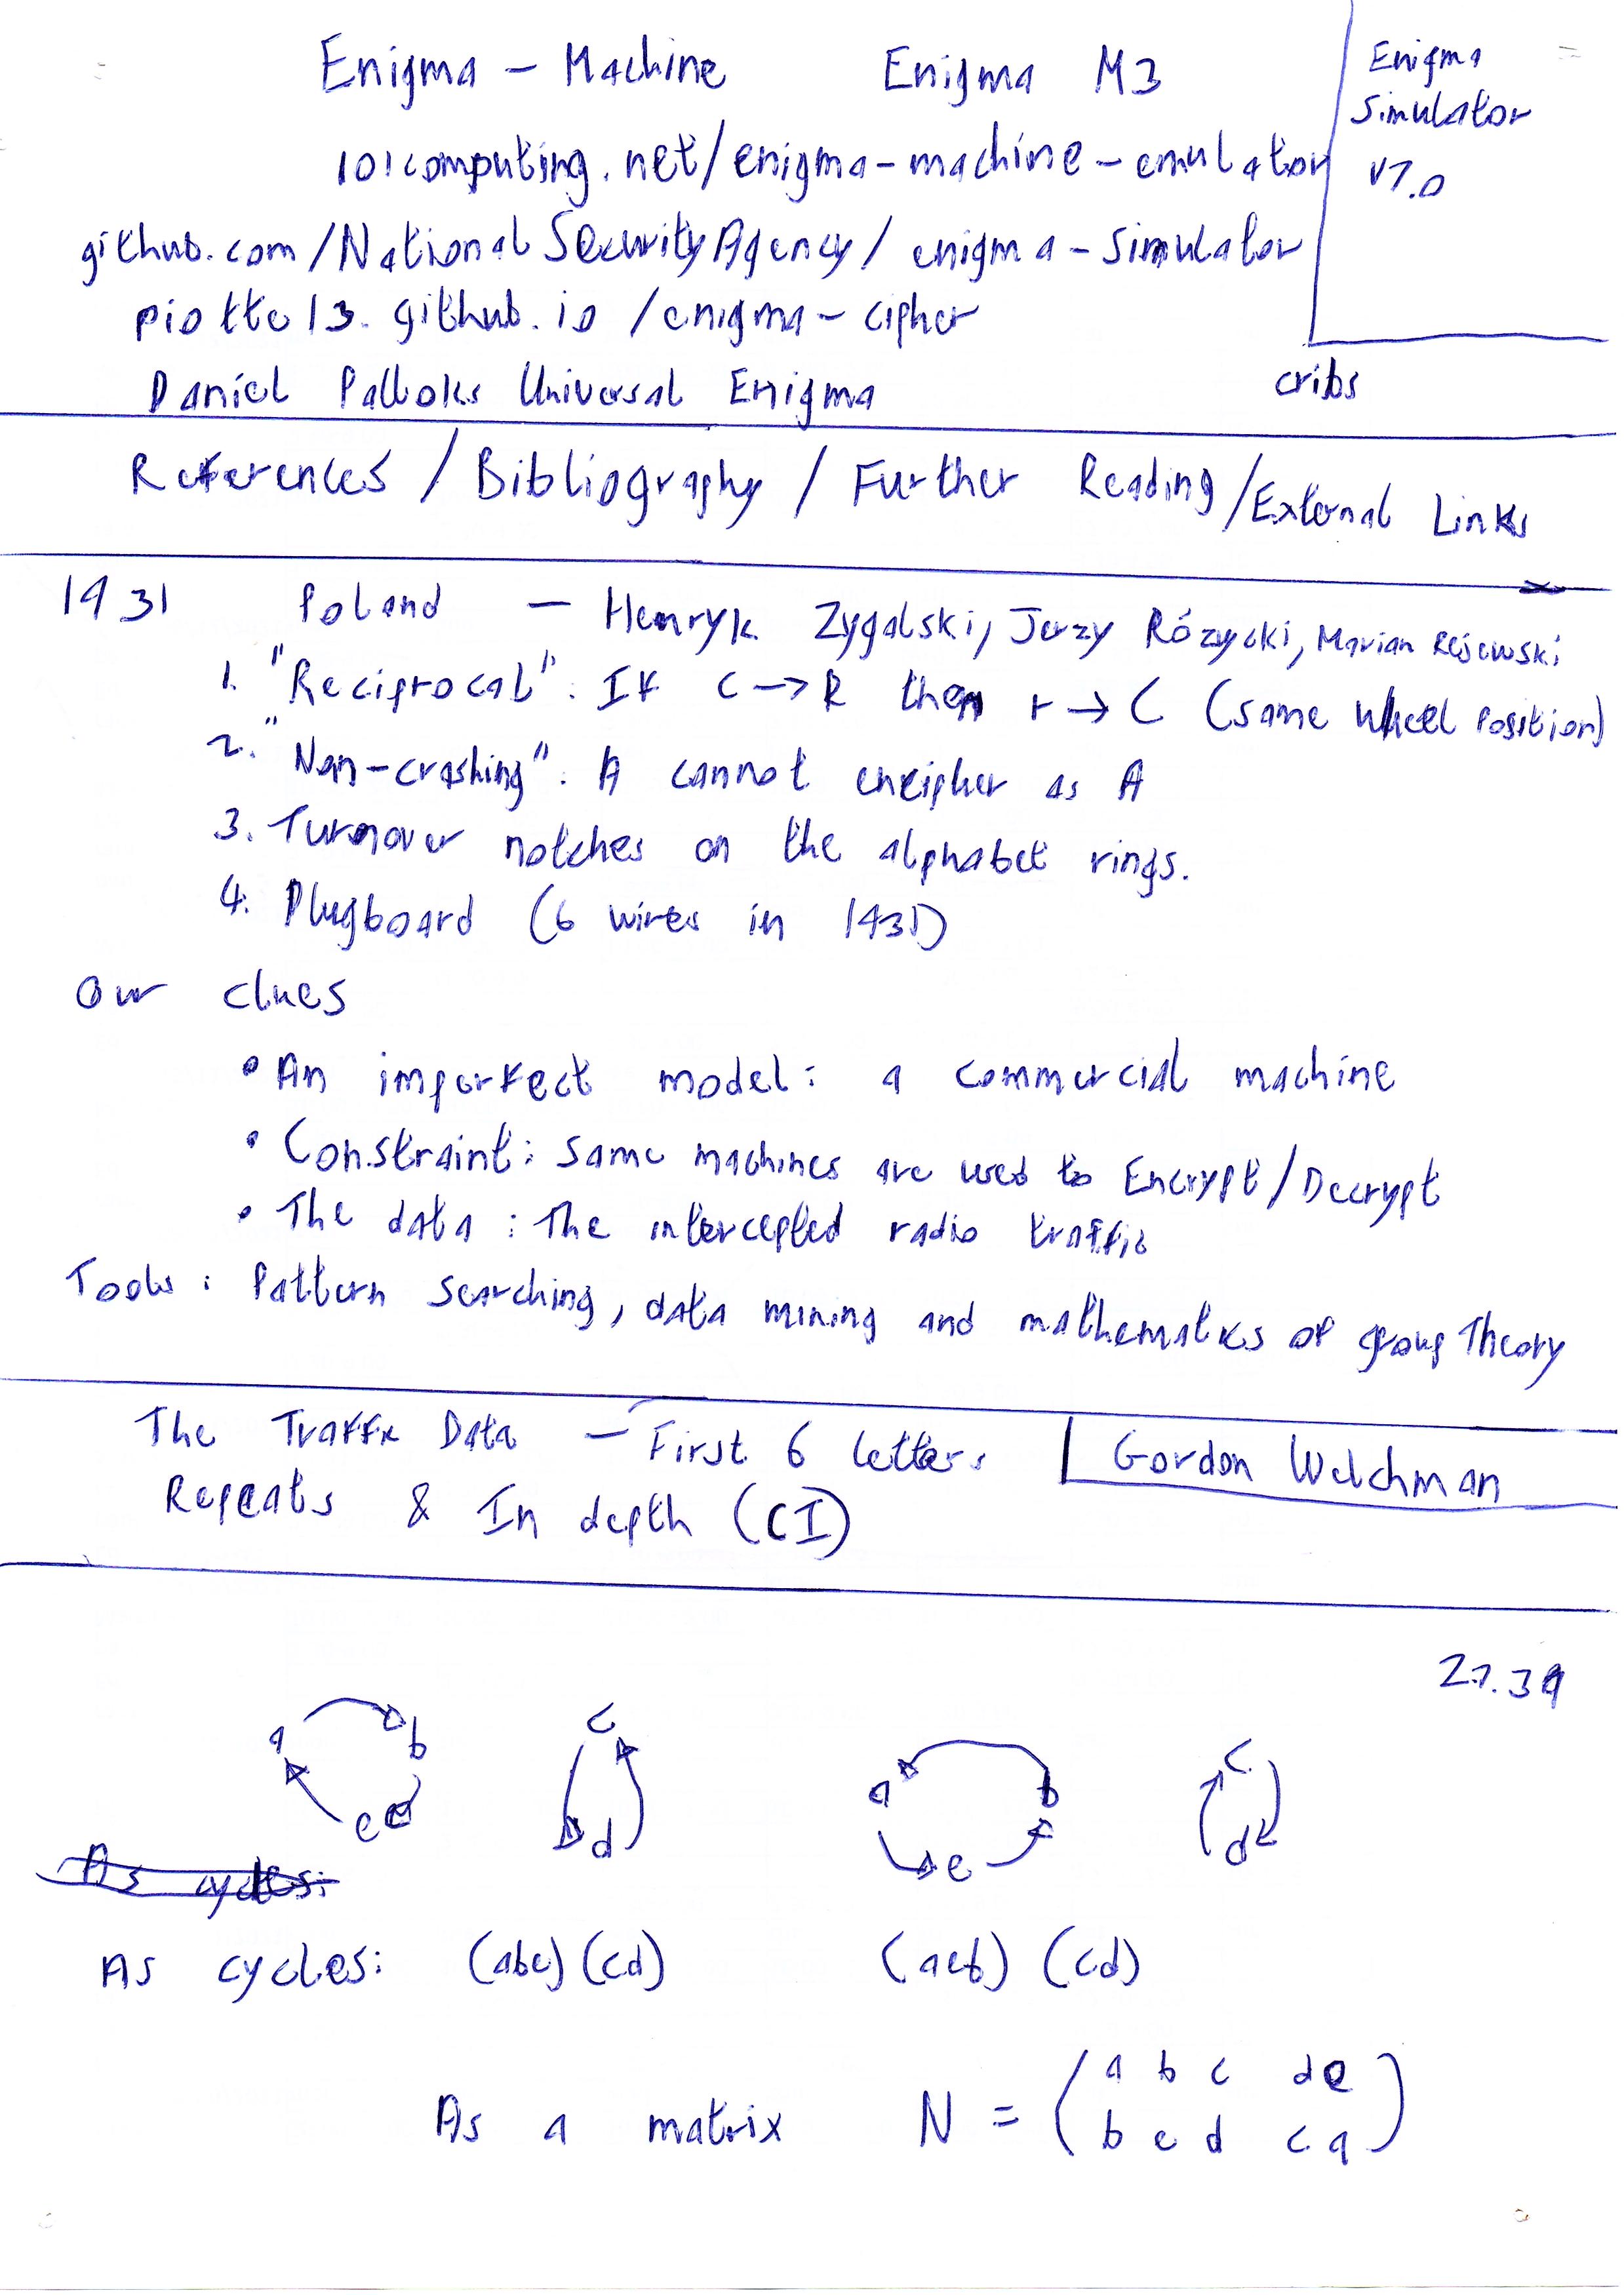 Enigma - Machine Enigma M3
Enigma
Simulator
v7.0
101computing.net/enigma-machine-emulator
github.com/NationalSecurityAgency/enigma-simulator
piotte13.github.io/enigma-cipher
Daniel Palloks Universal Enigma
cribs
References / Bibliography / Further Reading / External Links
1931 Poland - Henryk Zygalski, Jerzy Rózycki, Marian Rejewski
1. "Reciprocal": If C → R then r → C (same wheel position)
2. "Non-crashing": A cannot encipher as A
3. Turnover notches on the alphabet rings.
4. Plugboard (6 wires in 1931)
Our clues
• An imperfect model: a commercial machine
• Constraint: same machines are used to Encrypt/Decrypt
• The data: The intercepted radio traffic
Tools: Pattern searching, data mining and mathematics of group Theory
The Traffic Data - First 6 letters
Gordon Welchman
Repeats & In depth (CI)
27.39
a b c a b c
e d e d
As cycles:
As cycles: (abe)(cd) (aeb) (cd)
As a matrix N = (a b c d e
b e d c a)